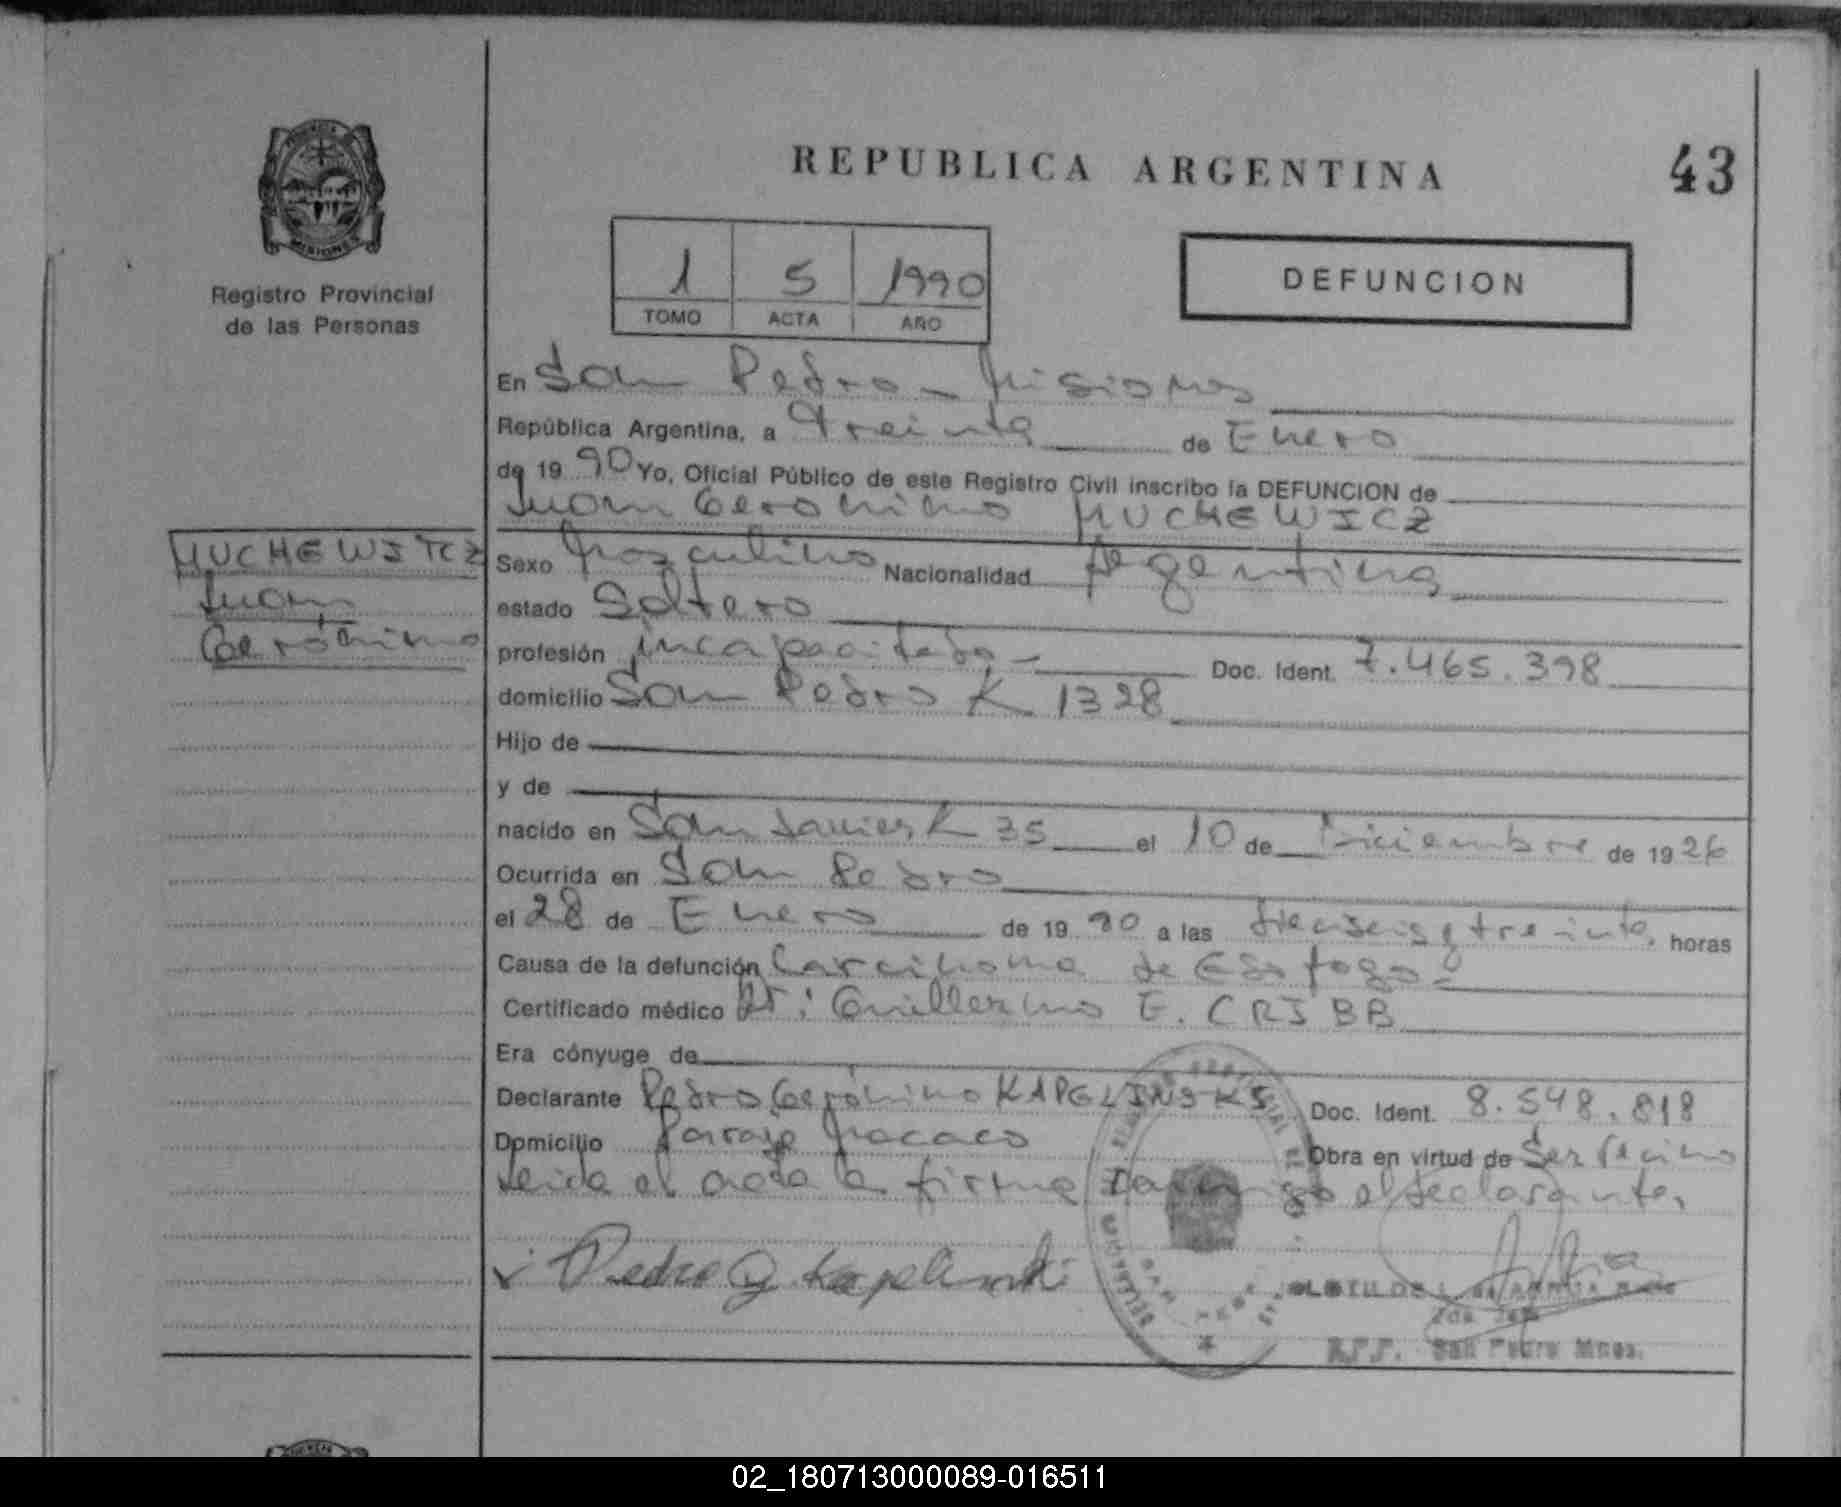 REPUBLICA ARGENTINA
43
MISIONES
Registro Provincial
de las Personas
1 5 1990
TOMO ACTA AÑO
DEFUNCION
En San Pedro - Misiones
República Argentina, a Treinta de Enero
de 19 90 Yo, Oficial Público de este Registro Civil inscribo la DEFUNCION de
Juan Geronimo MUCHEWICZ
MUCHEWITCZ
Juan
Gerónimo
Sexo Masculino Nacionalidad Argentina
estado Soltero
profesión incapacitado - Doc. Ident. 7.465.398
domicilio San Pedro K 1328
Hijo de
y de
nacido en San Javier K 35 el 10 de Diciembre de 1926
Ocurrida en San Pedro
el 28 de Enero de 19 90 a las dieciseis y treinta horas
Causa de la defunción Carcinoma de Esofago -
Certificado médico Dr: Guillermo E. CRIBB
Era cónyuge de
Declarante Pedro Gerónimo KAPELINSKI Doc. Ident. 8.548.818
Domicilio Paraje Macaco Obra en virtud de Ser Vecino
Leida el acta la firma conmigo el declarante.
Pedro G Kapelinski
2da Jefe
R.P.P. San Pedro Mnes.
02_180713000089-016511